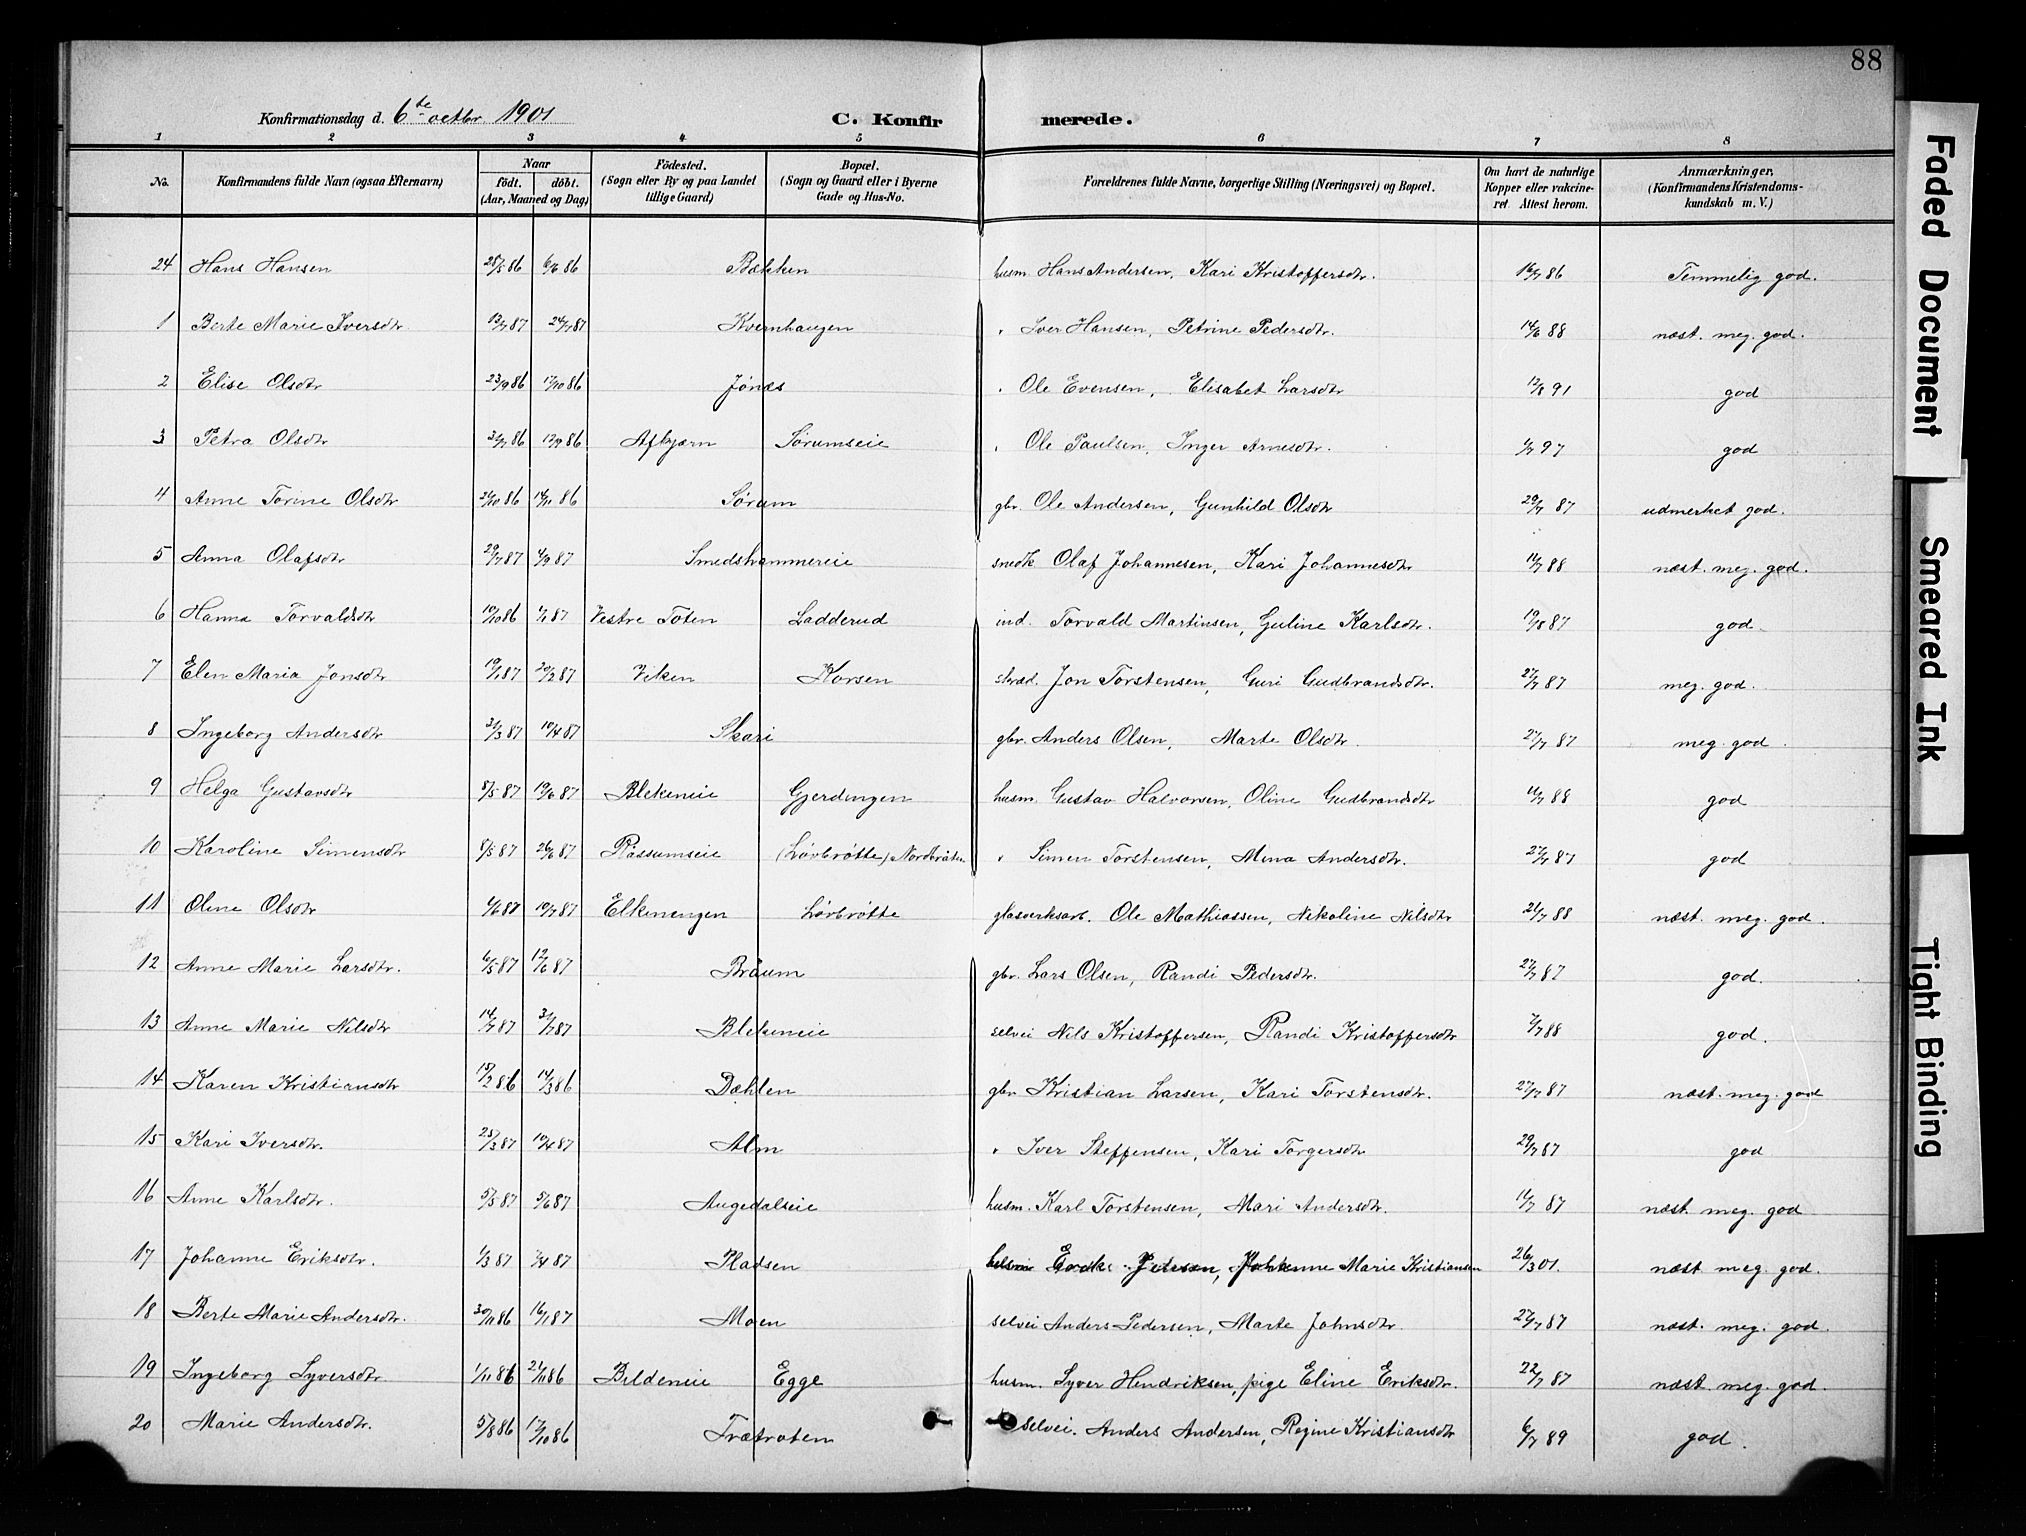 88
Konfirmationsdag d. 6te octbr. 1901 C. Konfirmerede.
1 2 3 4 5 6 7 8
No. Konfirmandens fulde Navn (ogsaa Efternavn) Naar födt. döbt. (Aar, Maaned og Dag) Födested. (Sogn eller By og paa Landet tillige Gaard) Bopæl. (Sogn og Gaard eller i Byerne Gade og Hus-No. Forældrenes fulde Navne, borgerlige Stilling (Næringsvei) og Bopæl. Om havt de naturlige Kopper eller vakcineret. Attest herom. Anmærkninger, (Konfirmandens Kristendomskundskab m. V.)
24 Hans Hansen 28/5 86 6/6 86 Bakken husm. Hans Andersen, Kari Kristoffersdtr. 16/7 86 Temmelig god.
1 Berte Marie Iversdtr. 13/7 87 24/7 87 Kvernhaugen " Iver Hansen, Petrine Pedersdtr. 14/6 88 næst. meg. god.
2 Elise Olsdtr 23/9 86 17/10 86 Jønes " Ole Evensen, Elisabet Larsdtr 12/8 91 god
3 Petra Olsdtr 86 86 Afkjærn Sørumseie " Ole Paulsen, Inger Arnesdtr. 97 god
4 Anne Torine Olsdtr 86 14/11 86 Sørum gbr. Ole Andersen, Gunhild Olsdtr 29/7 87 udmerket god.
5 Anna Olafsdtr 29/7 87 4/9 87 Smedshammereie snedk Olaf Johannesen, Kari Johannesdtr 88 næst. meg. god.
6 Hanna Torvaldsdtr 10/10 86 87 Vestre Toten Ladderud ind. Torvald Martinsen, Guline Karlsdtr. 19/8 87 god
7 Elen Maria Jonsdtr 19/1 87 20/2 87 Viken Korsen skræd. Jon Torstensen, Guri Gudbrandsdtr. 27/7 87 meg. god.
8 Ingeborg Andersdtr 2/3 87 10/4 87 Skari gbr. Anders Olsen, Marte Olsdtr. 27/7 87 meg. god.
9 Helga Gustavsdtr 8/5 87 19/6 87 Blekeneie Gjerdingen husm. Gustav Halvorsen, Oline Gudbrandsdtr 88 god
10 Karoline Simensdtr 8/5 87 26/6 87 Rassumseie (Lørbrøtte) Nordbråten " Simen Torstensen, Mina Andersdtr. 27/7 87 god
11 Oline Olsdtr 4/6 87 10/7 87 Elkenengen Lørbrøtte glasverksarb. Ole Mathiassen, Nikoline Nilsdtr 88 næst. meg. god.
12 Anne Marie Larsdtr. 6/5 87 12/6 87 Bråum gbr. Lars Olsen, Randi Pedersdtr. 27/7 87 god.
13 Anne Marie Nilsdtr 14/7 87 31/7 87 Blekeneie selvei Nils Kristoffersen, Randi Kristoffersdtr 7/7 88 god.
14 Karen Kristiansdtr 15/2 86 14/3 86 Dæhlen gbr Kristian Larsen, Kari Torstensdtr. 27/7 87 næst. meg. god
15 Kari Iversdtr. 25/3 87 10/4 87 Alm " Iver Steffensen, Kari Torgersdtr 29/7 87 god
16 Anne Karlsdtr. 5/5 87 5/6 87 Augedalseie husm. Karl Torstensen, Mari Andersdtr. 11/7 87 næst. meg. god
17 Johanne Eriksdtr. 1/3 87 4 87 Pladsen Marie Kristiansen 26/3 01. næst meg. god.
18 Berte Marie Andersdtr. 30/11 86 16/1 87 Moen selvei Anders Pedersen, Marte Johnsdtr. 27/7 87 næst. meg. god.
19 Ingeborg Syversdtr 1/11 86 21/11 86 Bildeneie Egge husm. Syver Hendriksen, pige Eline Eriksdtr. 22/7 87 næst. meg. god.
20 Marie Andersdtr. 5/8 86 17/10 86 Trætroten selvei. Anders Andersen, Regine Kristiansdtr 6/7 89 god.
Faded Document
Smeared Ink
Tight Binding